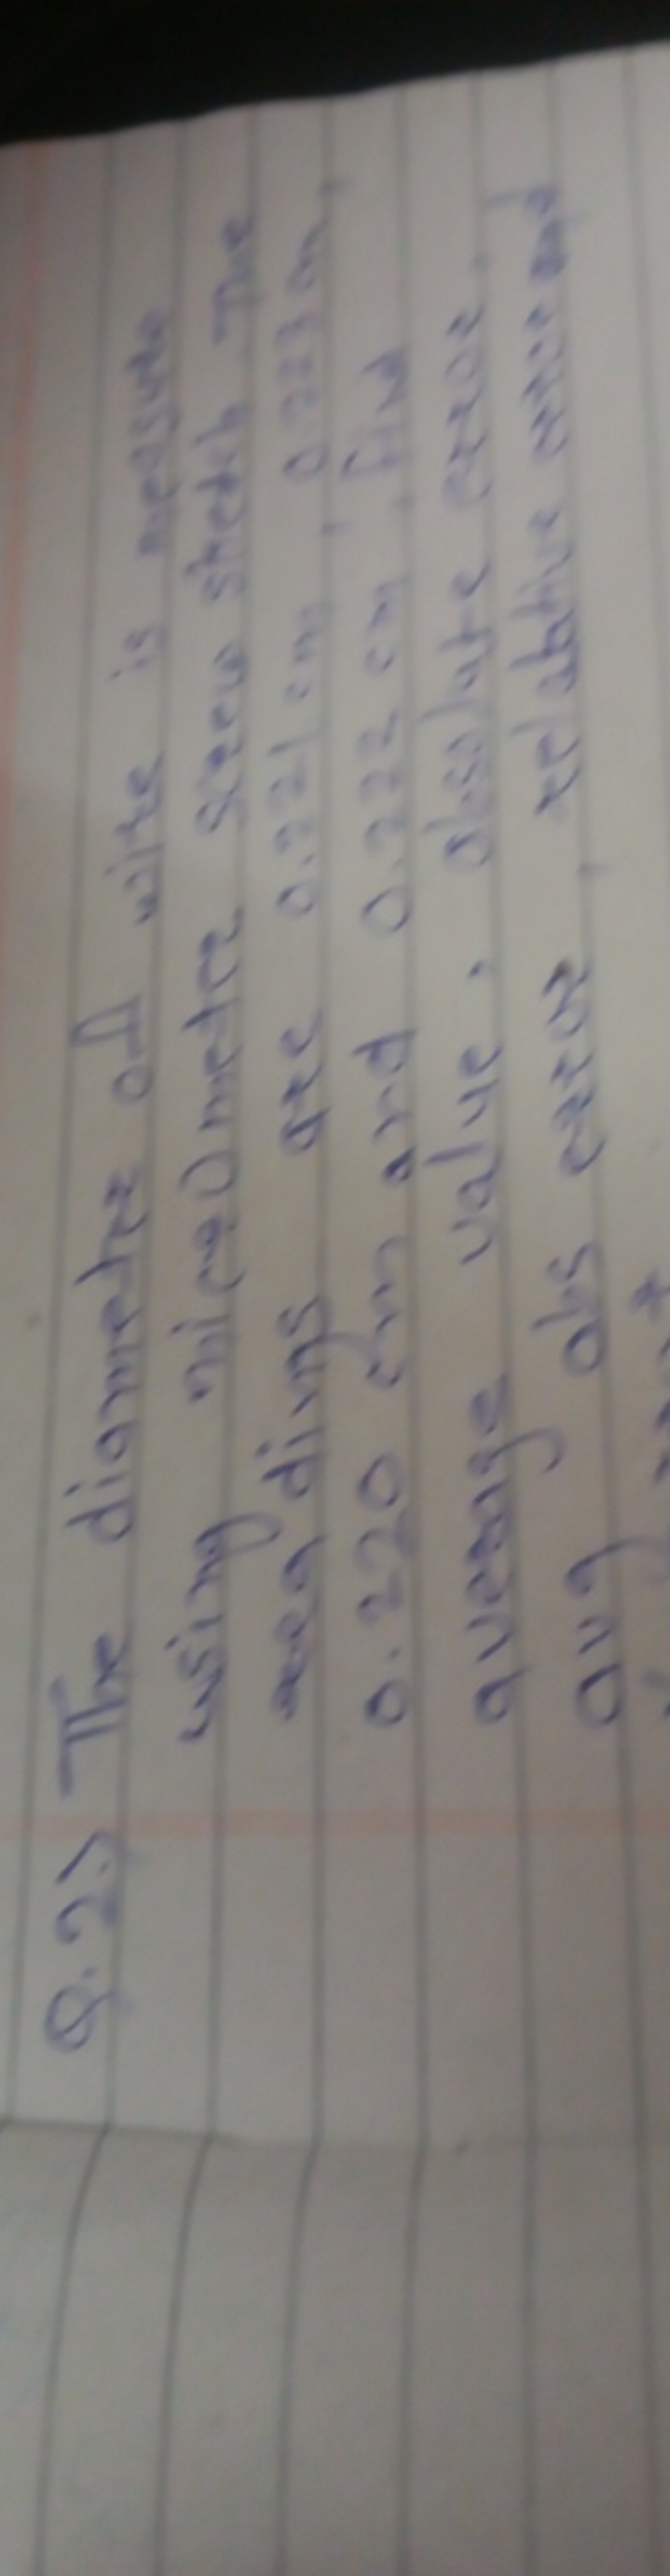 Q. 2.> The diametre of wire is measure
using micrometre screw stretch The
readings are 0.221 cm, 0.223 cm,
0.220 cm and 0.222 cm, find
average value. absolute error,
avg abs error, relative error and